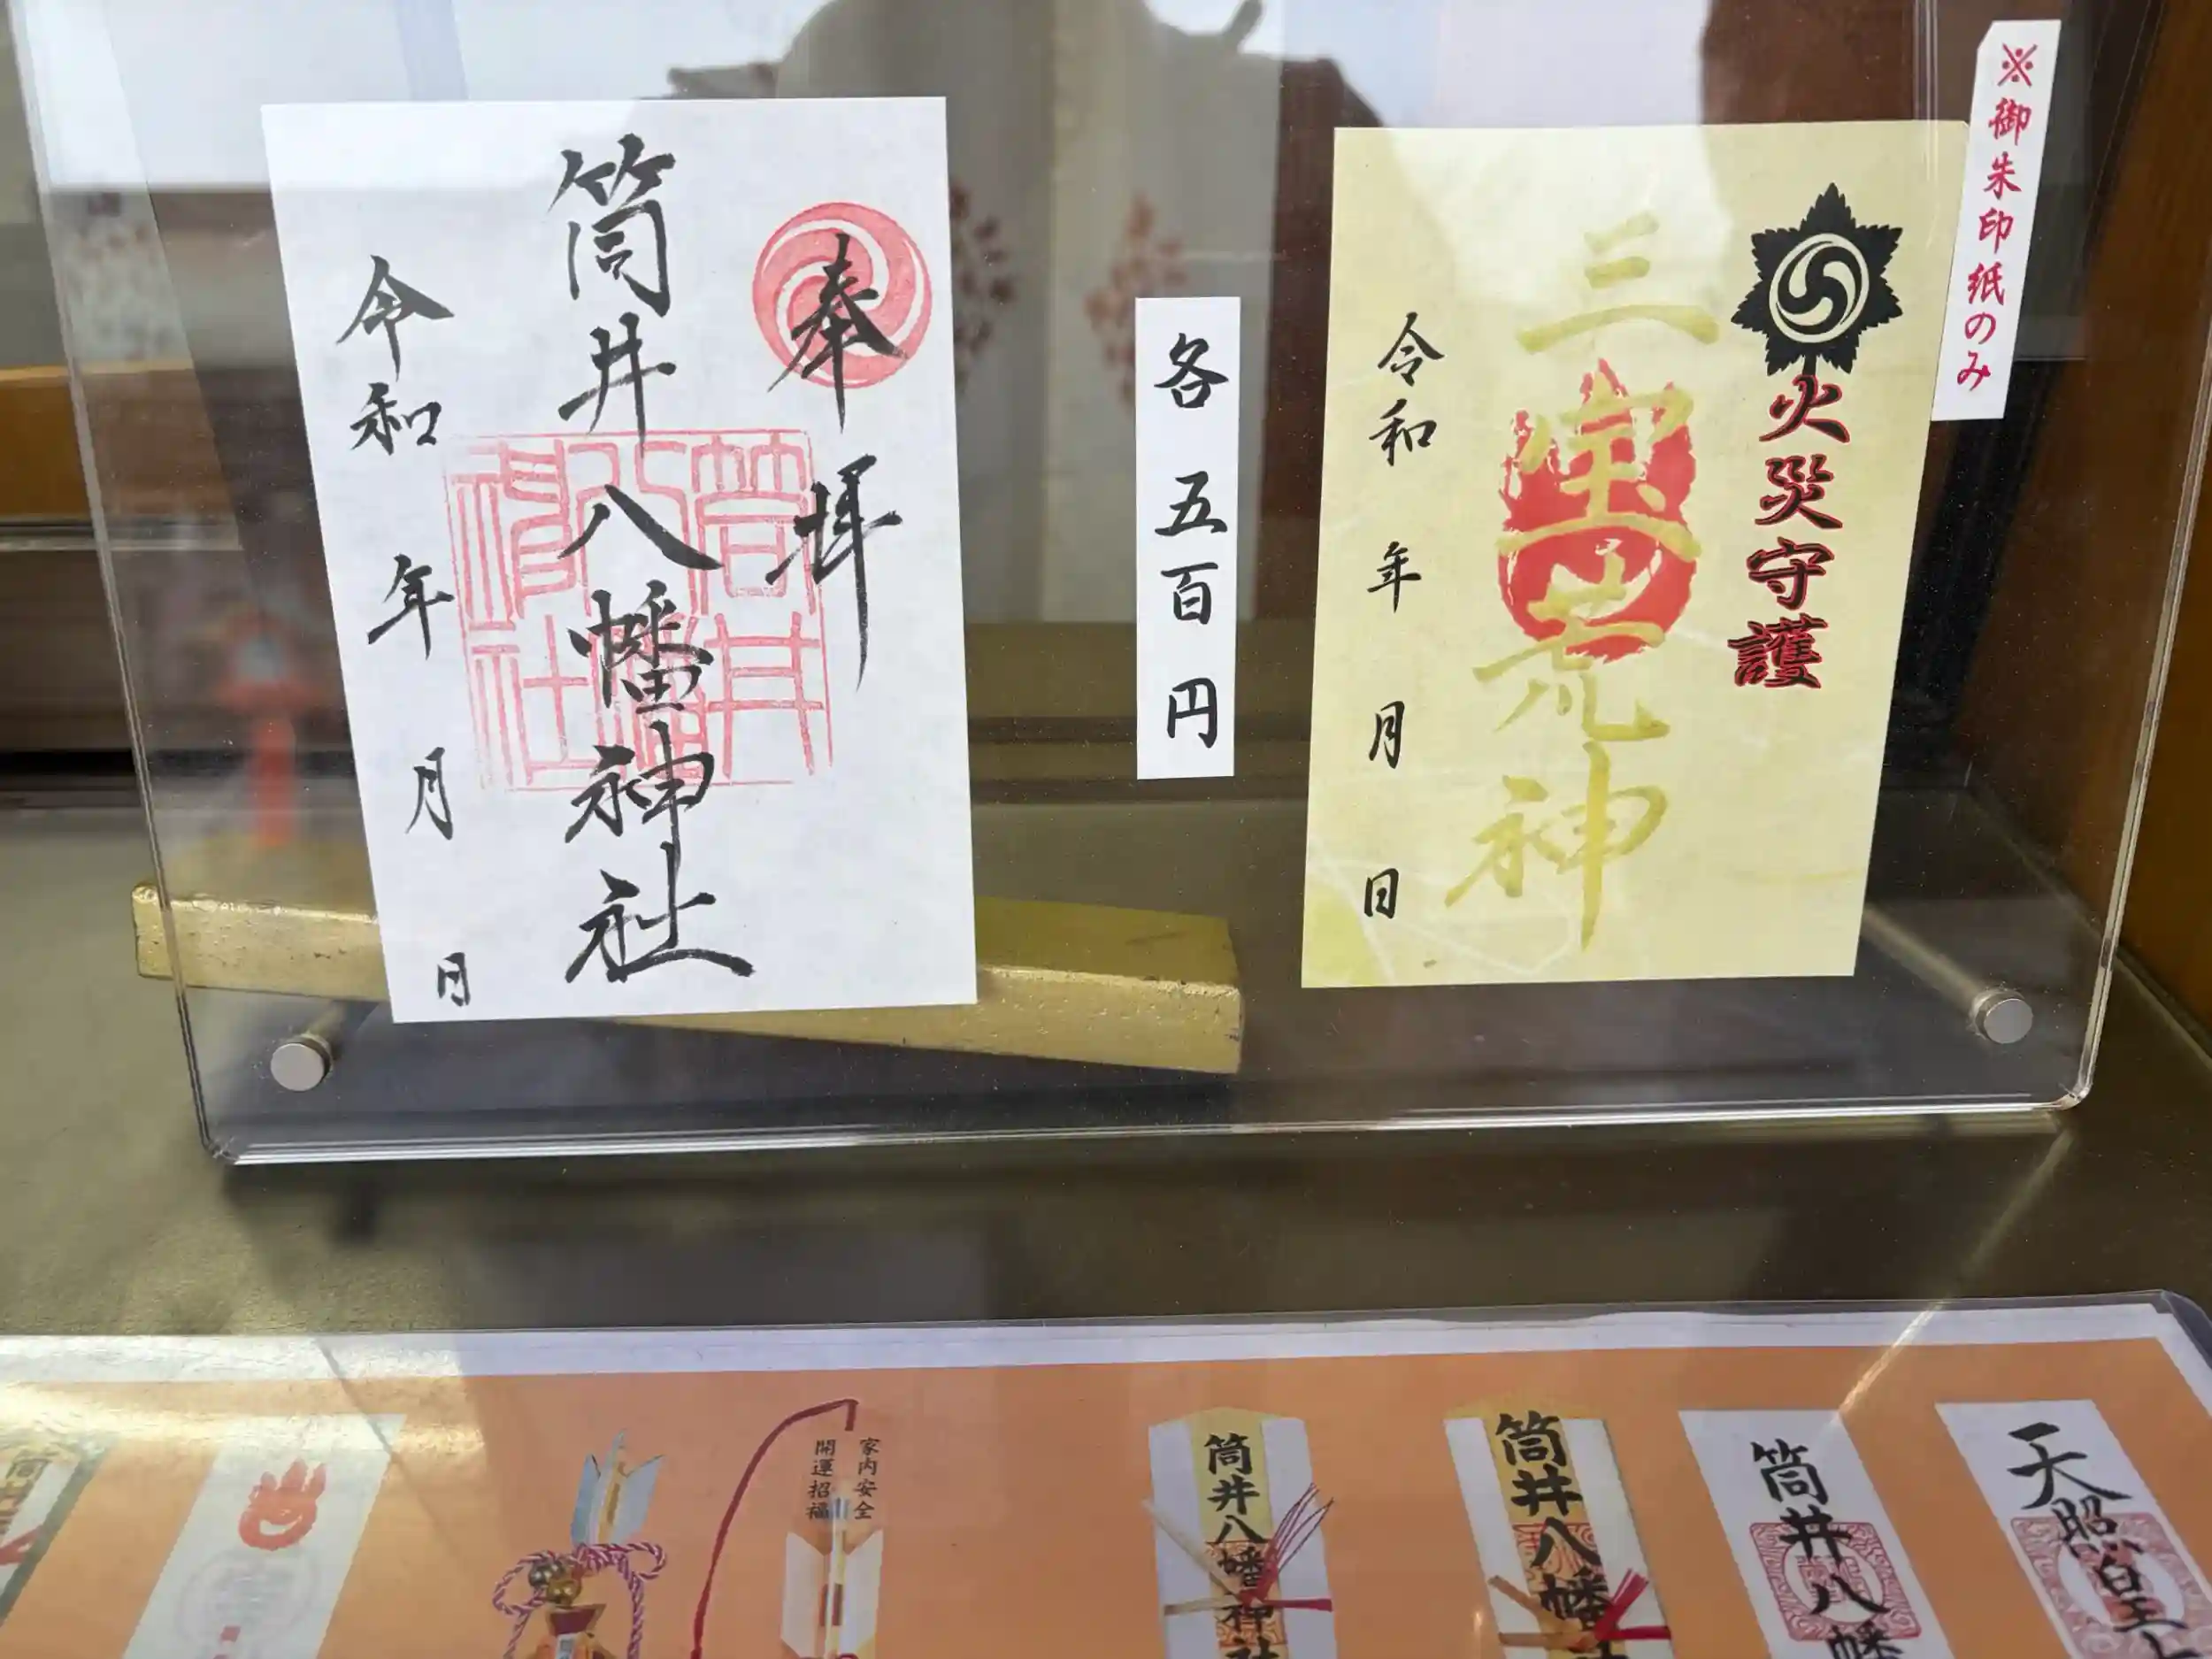 ※御朱印紙のみ
火災守護
三宝荒神
令和 年 月 日
各 五百円
奉拝
筒井八幡神社
筒井八幡神社
令和 年 月 日
天照皇
筒井八幡
筒井八幡
筒井八幡神社
家内安全
開運招福